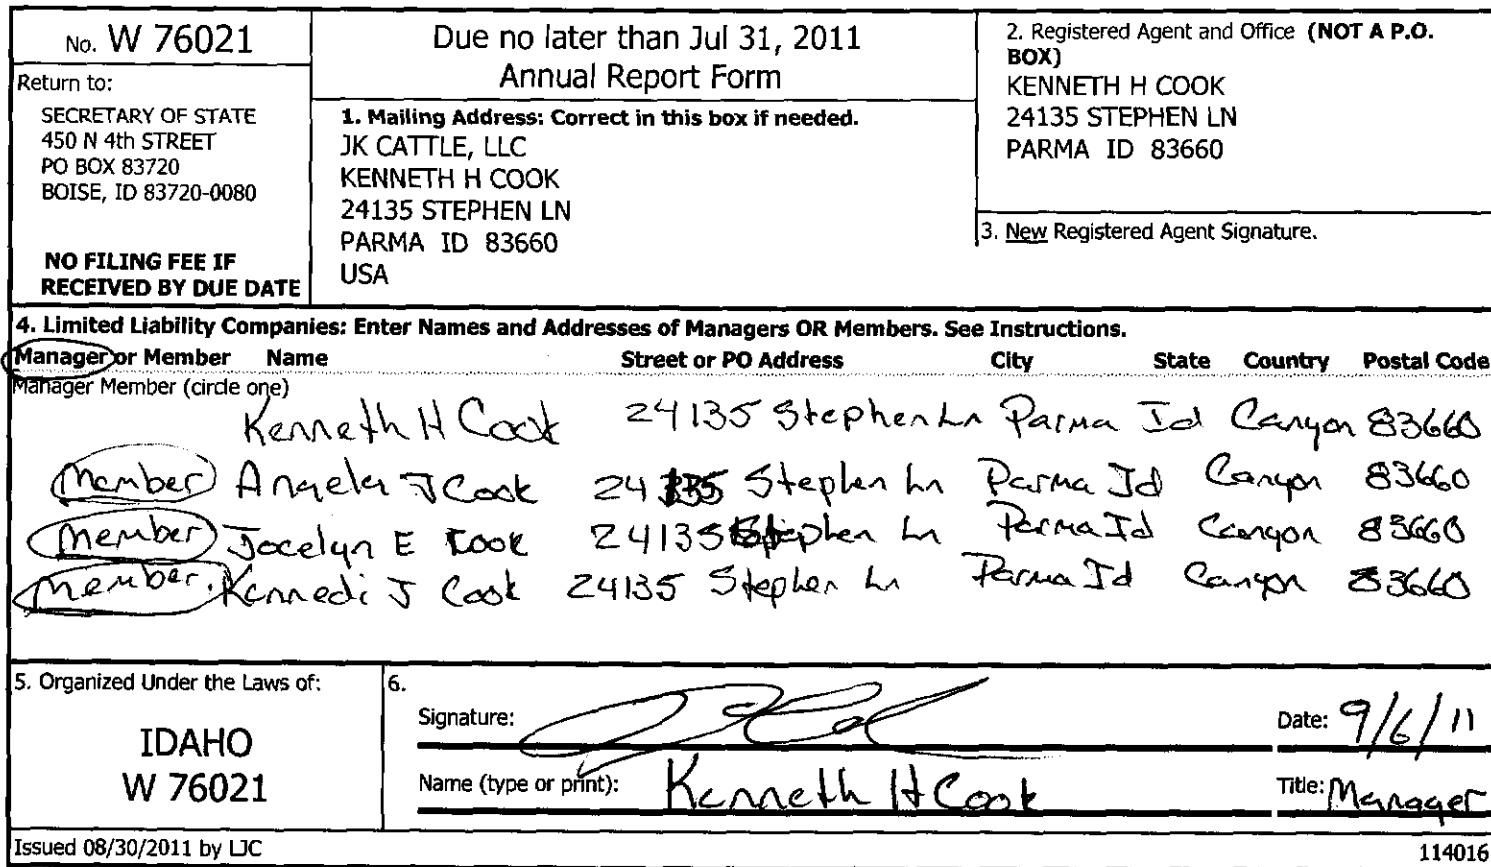 No. W 76021
Return to:
SECRETARY OF STATE
450 N 4th STREET
PO BOX 83720
BOISE, ID 83720-0080
NO FILING FEE IF
RECEIVED BY DUE DATE
Due no later than Jul 31, 2011
Annual Report Form
1. Mailing Address: Correct in this box if needed.
JK CATTLE, LLC
KENNETH H COOK
24135 STEPHEN LN
PARMA ID 83660
USA
2. Registered Agent and Office (NOT A P.O.
BOX)
KENNETH H COOK
24135 STEPHEN LN
PARMA ID 83660
3. New Registered Agent Signature.
4. Limited Liability Companies: Enter Names and Addresses of Managers OR Members. See Instructions.
Manager or Member Name Street or PO Address City State Country Postal Code
Manager Member (circle one)
Kenneth H Cook 24135 Stephen Ln Parma Id Canyon 83660
Member Angela J Cook 24135 Stephen Ln Parma Id Canyon 83660
Member Jocelyn E Cook 24135 Stephen Ln Parma Id Canyon 83660
Member. Kennedi J Cook 24135 Stephen Ln Parma Id Canyon 83660
5. Organized Under the Laws of:
IDAHO
W 76021
6.
Signature:
Date: 9/6/11
Name (type or print): Kenneth H Cook
Title: Manager
Issued 08/30/2011 by LJC
114016